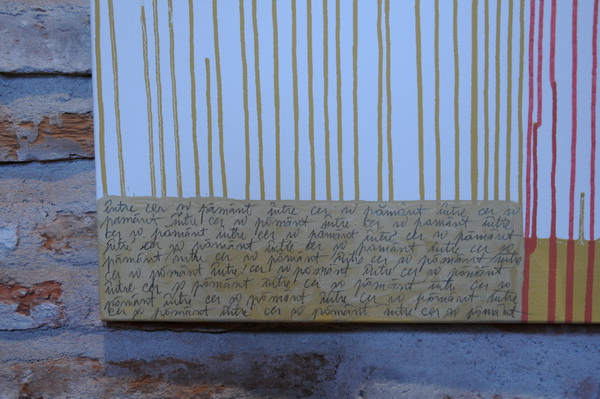 între cer și pământ între cer și pământ între cer și
pământ între cer și pământ între cer și pământ între
cer și pământ între cer și pământ între cer și pământ
între cer și pământ între cer și pământ între cer și
pământ între cer și pământ între cer și pământ între
cer și pământ între cer și pământ între cer și pământ
între cer și pământ între cer și pământ între cer și
pământ între cer și pământ între cer și pământ între
cer și pământ între cer și pământ între cer și pământ